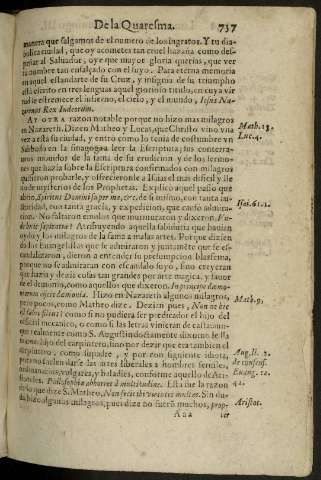 De la Quaresma. 737
manera que salgamos de el numero de los ingratos. Y tu dia-
bolica ciudad, que oy acometes tan cruel hazaña como des-
peñar al Salvador, oye que mayor gloria querias, que ver
tu nombre tan ensalçado con el suyo. Para eterna memoria
en aquel estandarte de su Cruz, y insignia de su triumpho
está escrito en tres lenguas aquel glorioso titulo, en cuya vir-
tud se estremece el infierno, el cielo, y el mundo, Iesus Na-
zarenus Rex Iudeorum.
AY OTRA razon notable porque no hizo mas milagros
en Nazareth. Dizen Matheo y Lucas, que Christo vino vna
vez a esta su ciudad, y entrò como lo tenia de costumbre vn
Sabbado en la sinagoga a leer la Escriptura, sus conterra-
neos movidos de la fama de su erudicion y de los sermo-
nes que hazia sobre la Escriptura confirmados con milagros
quisieron probarle, y ofrecieronle a Isaias el mas dificil y lle
no de mysterios de los Prophetas. Explicò aquel passo que
abrio, Spiritus Domini super me, &c. de si mismo, con tanta au-
thoridad, con tanta gracia, y expedicion, que causò admira-
cion. No faltaron emulos que murmuraron y dixeron, Vn-
de huic sapientia? Atribuyendo aquella sabiduria que havian
oydo y los milagros de la fama a malas artes. Porque dizien
do los Evangelistas que se admiraron y juntamẽte que se es-
candalizaron, dieron a entender su presumpcion blasfema,
porque no se admiraron con escandalo suyo, sino creyeran
que hazia y dezia cosas tan grandes por arte magica, y favor
de el demonio, como aquellos que dixeron. In principe dæmo-
niorum eijcit dæmonia. Hizo en Nazareth algunos milagros,
pero pocos, como Matheo dize. Dezian pues, Non ne hic
est fabri filius? como si no pudiera ser predicador el hijo del
official mecanico, o como si las letras vinieran de casta: aun-
que realmente como S. Augustin doctamente dixo: no le lla-
maron hijo del carpintero, sino por dezir que era tambien el
carpintero, como su padre, y por con siguiente idiota,
porque suelen darse las artes liberales a hombres senzi les,
ordinarios, vulgares, y baladies, conforme aquello de Aris-
toteles. Philosophia abhorret à multitudine. Esta fue la razon
de lo que dize S. Matheo, Non fecit ibi virtutes multas. Sin du-
da hizo algunos milagros, pues dize no fuerõ muchos, prop-
Aaa ter
Math. 13.
Luc. 4.
Isai. 61. 1.
Math. 9.
Aug. li. 2.
de consens.
Euang. 12.
42.
Aristot.